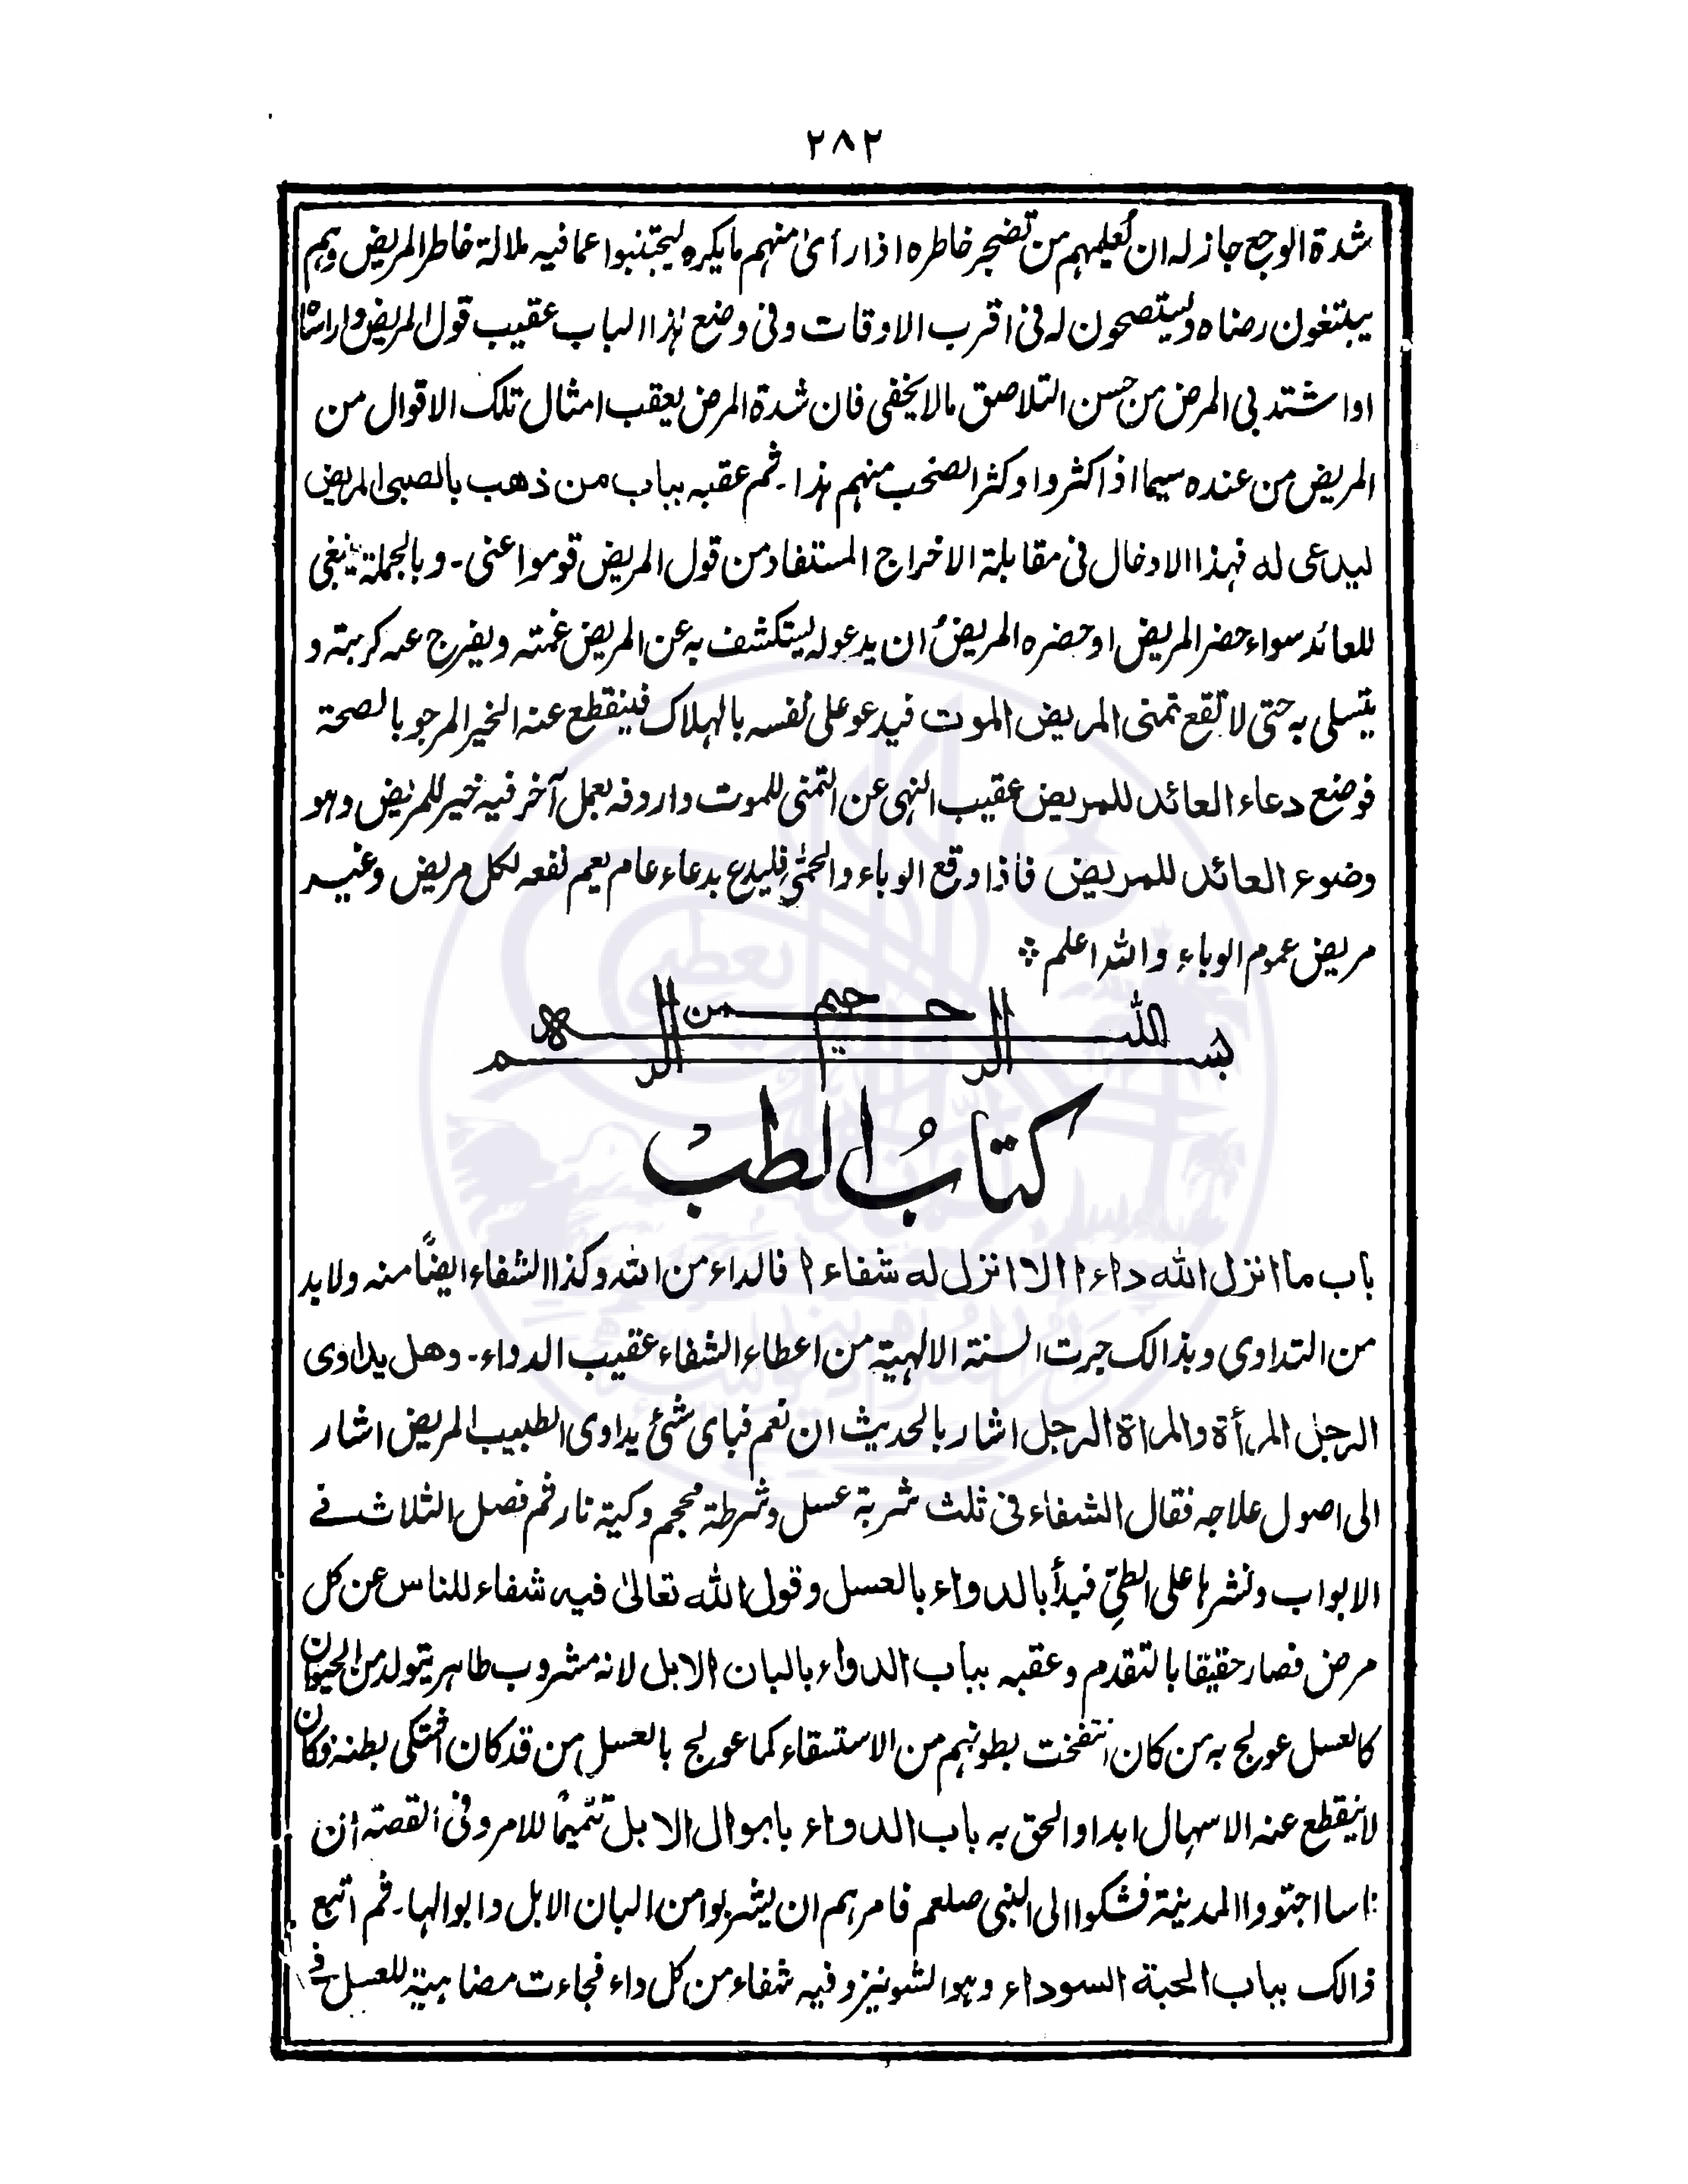 ٢٨٢
شدة الوجع جاز له ان يُعلمهم من تضجر خاطره اذا رأىٰ منهم ما يكره ليجتنبوا عما فيه ملالة خاطر المريض وهم
يبتغون رضاه وليتصحون له فى اقرب الاوقات وفى وضع هذا الباب عقيب قول المريض وا راساه
او اشتد بى المرض من حسن التلاصق مالا يخفى فان شدة المرض يعقب امثال تلك الاقوال من
المريض من عنده سيما اذا اكثروا وكثر الصخب منهم هذا۔ ثم عقبه بباب من ذهب بالصبى المريض
ليدعى له فهذا الادخال فى مقابلة الاخراج المستفاد من قول المريض قوموا عنى۔ وبالجملة ينبغى
للعائد سواء حضر المريض او حضره المريضُ ان يدعو له ليتكشف به عن المريض غمته ويفرج عنه كربته و
يتسلى به حتى لا تقع تمنى المريض الموت فيدعو على نفسه بالهلاك فينقطع عنه الخير المرجو بالصحة
فوضع دعاء العائد للمريض عقيب النهى عن التمنى للموت واردفه بعمل آخر فيه خير للمريض وهو
وضوء العائد للمريض فاذا وقع الوباء والحمّٰى فليدع بدعاء عام يعم نفعه لكل مريض وغير
مريض عموم الوباء والله اعلم
بسم الله الرحمن الرحيم
كتابُ الطب
باب ما انزل الله داء ا الا انزل له شفاء ا فالداء من الله وكذا الشفاء ايضًا منه ولا بد
من التداوى وبذالك جرت السنة الالهية من اعطاء الشفاء عقيب الدواء۔ وهل يداوى
الرجل المرأة والمراة الرجل اشار بالحديث ان نعم فباى شئ يداوى الطبيب المريض اشار
الى اصول علاجه فقال الشفاء فى ثلث شربة عسل وشرطة محجم وكية نار ثم فصل الثلاث فے
الابواب ونشرها على الطىِّ فبدأ بالدواء بالعسل وقول الله تعالىٰ فيه شفاء للناس عن كل
مرض فصار حقيقا بالتقدم وعقبه بباب الدواء بالبان الابل لانه مشروب طاهر يتولد من الحيوان
كالعسل عولج به من كان انتفخت بطونهم من الاستسقاء كما عولج بالعسل من قد كان اشتكى بطنه وكان
لا ينقطع عنه الاسهال ابدا والحق به باب الدواء بابوال الابل تتميمًا للامر وفى القصة ان
ناسا اجتووا المدينة فشكوا الى النبى صلعم فامرهم ان يشربوا من البان الابل وابوالها۔ ثم اتبع
ذالك بباب الحبة السوداء وهو الشونيز وفيه شفاء من كل داء فجاءت مضاهية للعسل فے